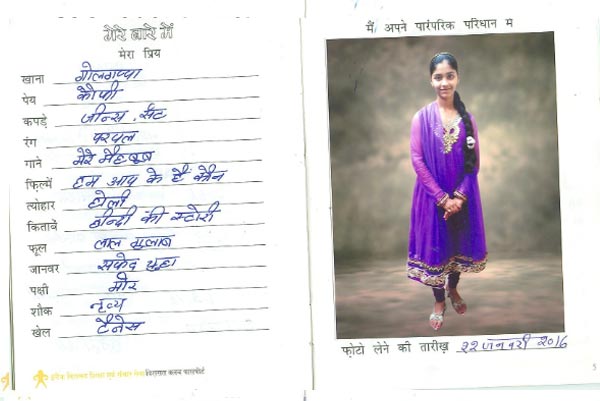 मेरे बारे में
मेरा प्रिय
खाना गोलगप्पा
पेय कौफी
कपड़े जीन्स, सर्ट
रंग परपल
गाने मेरे मेहबुब
फिल्में हम आप के है कौन
त्योहार होली
किताबें हीन्दी की स्टोरी
फूल लाल गुलाब
जानवर सफेद चुहा
पक्षी मोर
शौक नृत्य
खेल टेनिस
मैं अपने पारंपरिक परिधान में
फ़ोटो लेने की तारीख़ २२ जनवरी २०१६
5